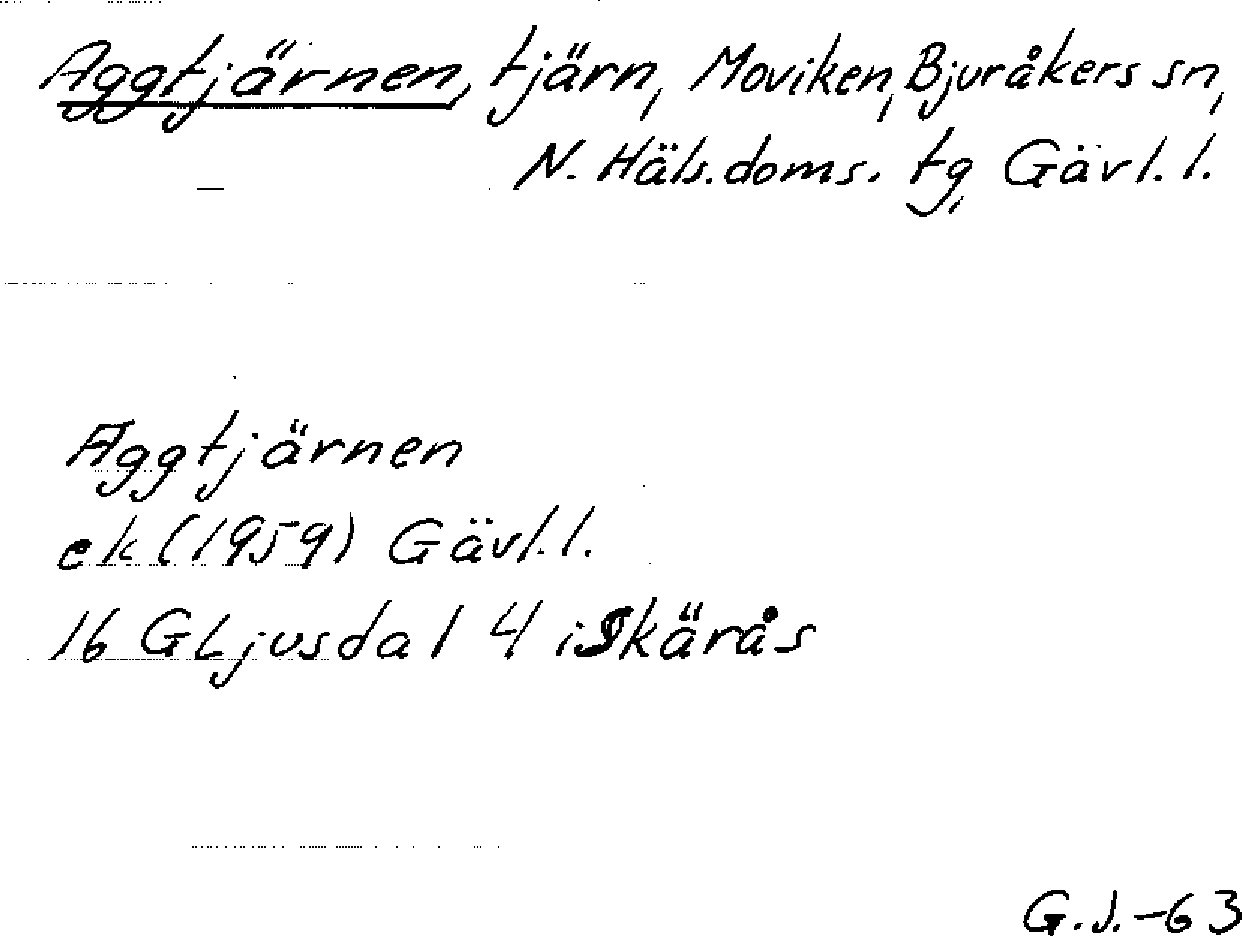 Aggtjärnen, tjärn, Moviken, Bjuråkers sn,
N. Häls. doms. tg, Gävl. l.
Aggtjärnen
ek (1959) Gävl. l.
16 G Ljusdal 4 i Skärås
G.J.-63